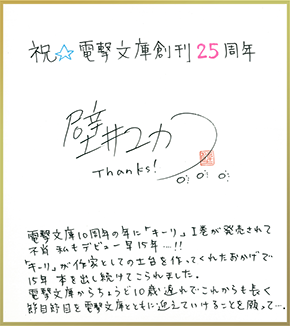 祝☆電撃文庫創刊25周年
壁井ユカコ
Thanks!
電撃文庫10周年の年に「キーリ」I巻が発売されて
不肖私もデビュー早15年…!!
「キーリ」が作家としての土台を作ってくれたおかげで
15年本を出し続けてこられました。
電撃文庫からちょうど10歳遅れでこれからも長く
節目節目を電撃文庫とともに迎えていけることを願って…。